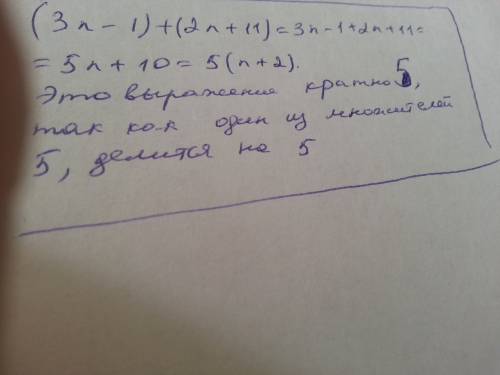 (3n - 1) + (2n + 11) = 3n - 1 + 2n + 11 =
= 5n + 10 = 5(n + 2).
Это выражение кратно 5,
так как один из множителей
5, делится на 5